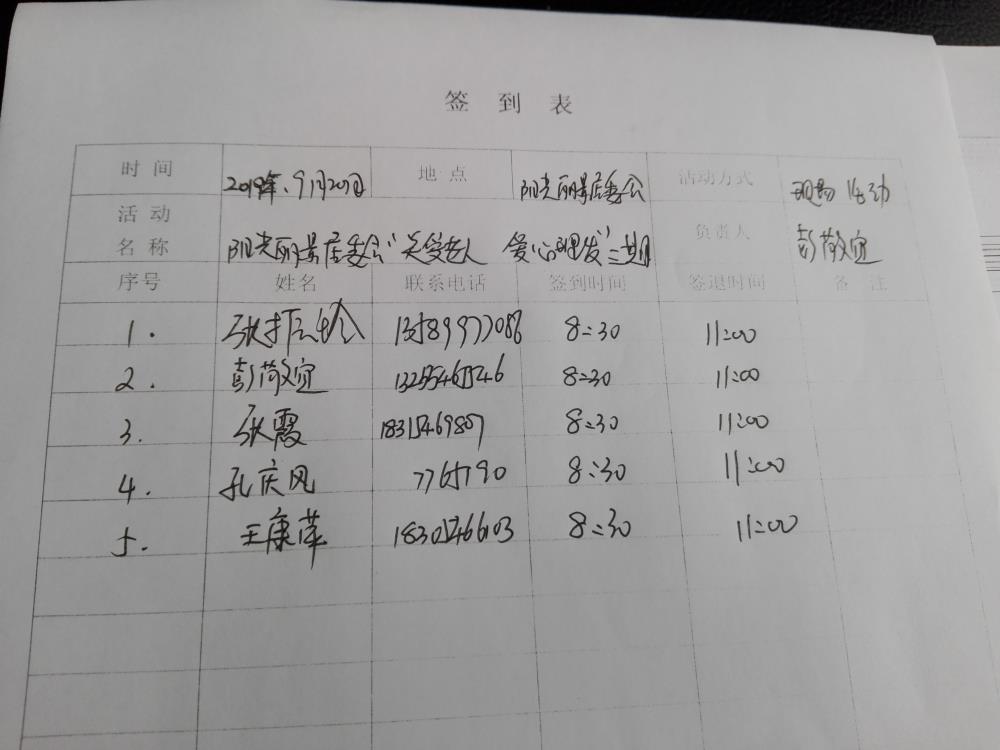 签到表
时间 2019年、9月20日 地点 阳光丽景居委会 活动方式 现场活动
活动
名称 阳光丽景居委会“关爱老人 爱心理发”二期 负责人 彭敬宜
序号 姓名 联系电话 签到时间 签退时间 备注
1. 8:30 11:00
2. 彭敬宜 8:30 11:00
3. 张霞 8:30 11:00
4. 孔庆风 7765790 8:30 11:00
5. 王康萍 18305466103 8:30 11:00